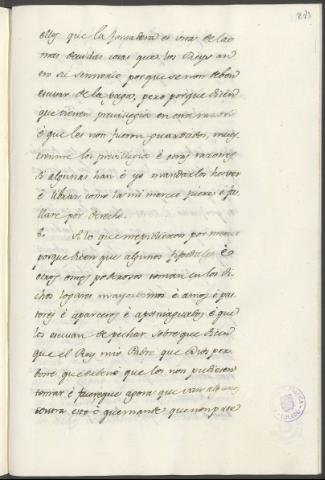 ellos que la fonsadera es una de las
mas devidas cosas que los Reyes an
en su sennorio porque se non deben
escusar de la pagar, pero porque dicen
que tienen previllegios en esta razon
è que les non fueron guardados, mues
trenme los previllegios è otras razones
si algunas han è yo mandarlos he ver
è librar como la mi merced fuere è fa
llare por derecho.
8. A lo que me pidieron por merced
porque dicen que algunos fijosdalgo è
otros omes poderosos toman en los di
chos logares mayordomos è amos è pas
tores è aparceros è apaniaguados è que
los escusan de pechar sobre que dicen
que el Rey mio Padre que Dios per
done que defendio que los non pudiesen
tomar è fueres que agora que van algunos
contra esto è que mande que non pase